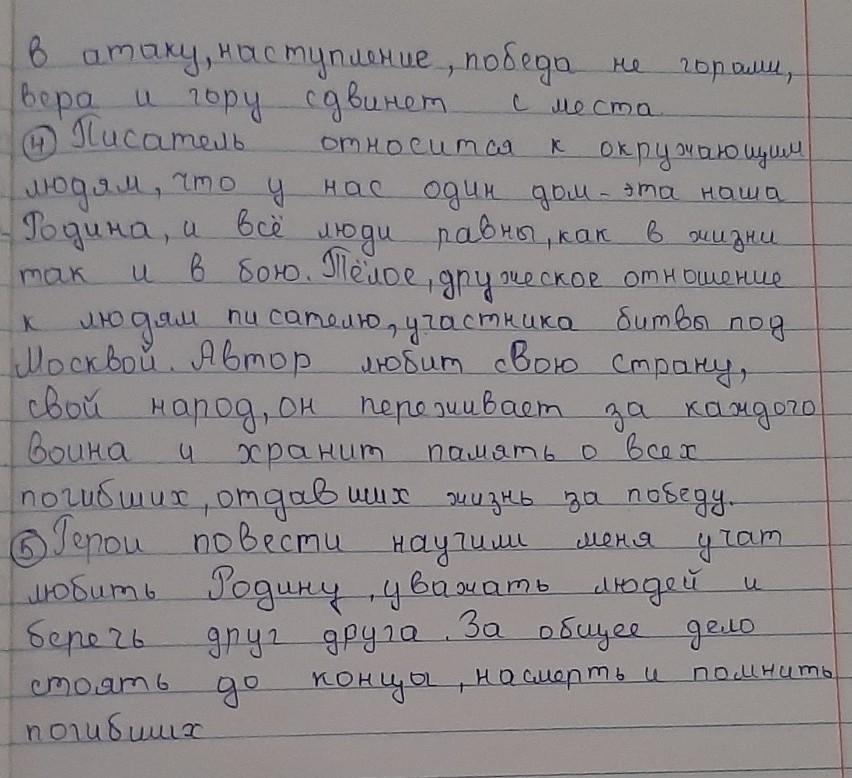 в атаку, наступление, победа не горами,
вера и гору сдвинет с места
④ Писатель относится к окружающим
людям, что у нас один дом - эта наша
Родина, и всё люди равны, как в жизни
так и в бою. Тёлое, дружеское отношение
к людям писателю, участника битвы под
Москвой. Автор любит свою страну,
свой народ, он переживает за каждого
воина и хранит память о всех
погибших, отдавших жизнь за победу.
⑤ Герои повести научили меня учат
любить Родину, уважать людей и
беречь друг друга. За общее дело
стоять до конца, насмерть и помнить
погибших